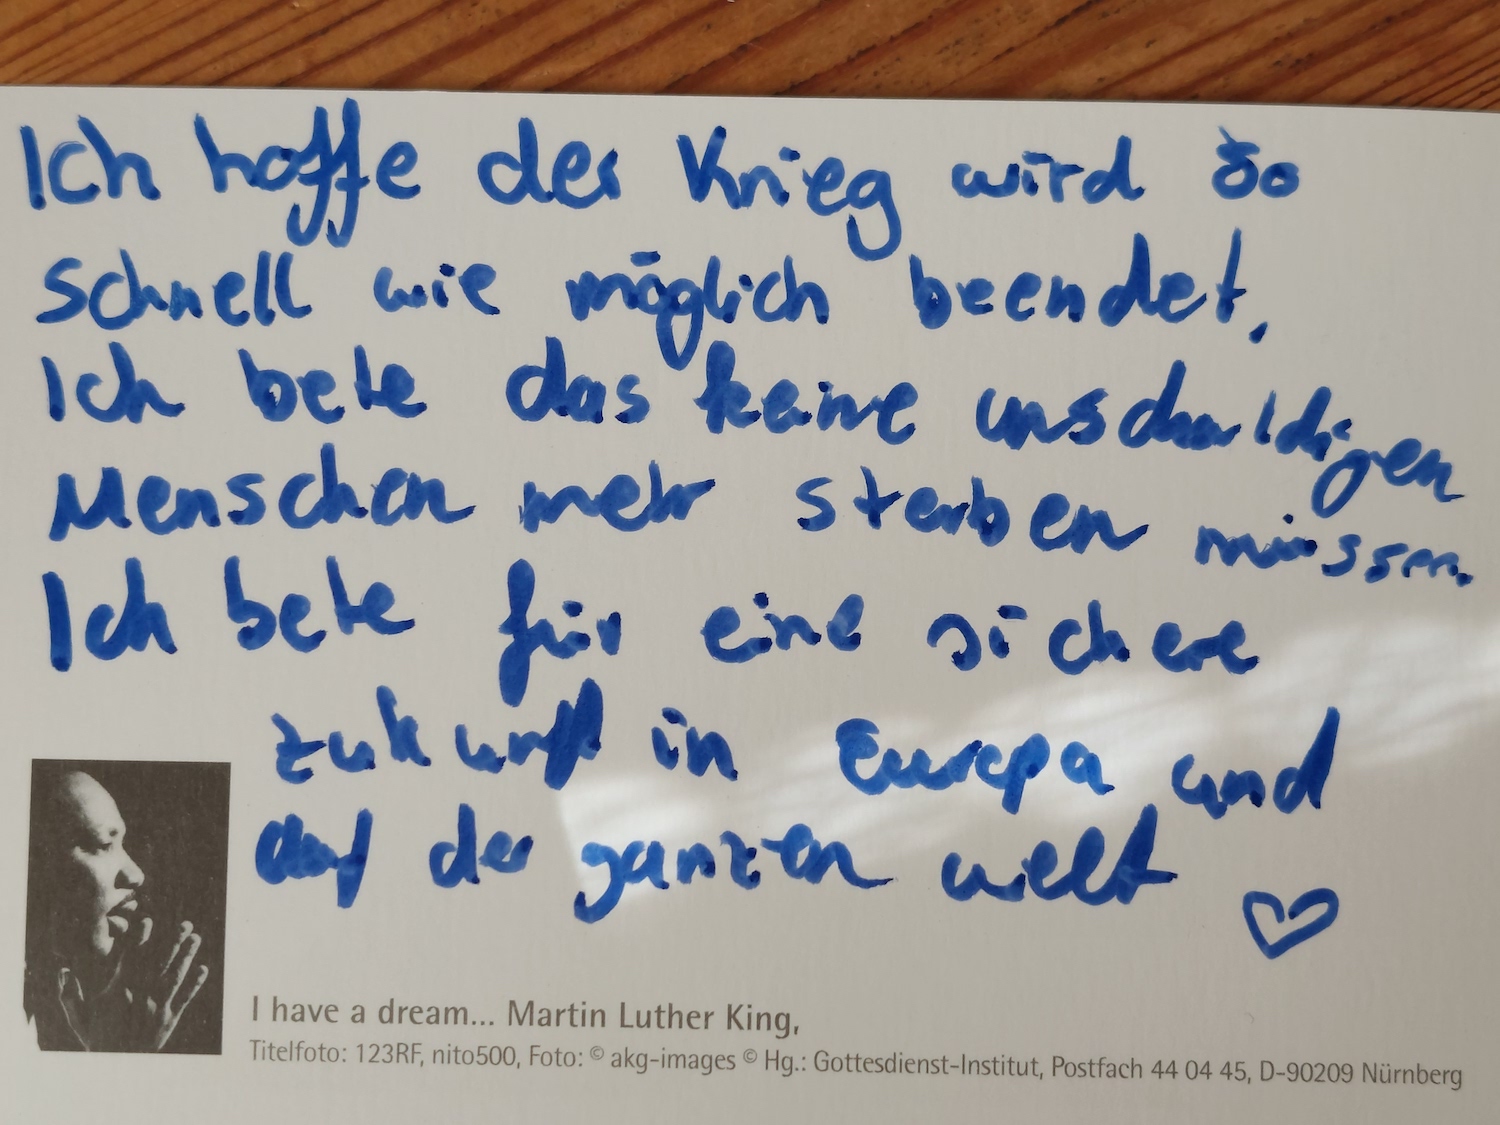 Ich hoffe der Krieg wird so
schnell wie möglich beendet.
Ich bete das keine unschuldigen
Menschen mehr sterben müssen.
Ich bete für eine sichere
zukunft in Europa und
auf der ganzen welt ♡
I have a dream... Martin Luther King,
Titelfoto: 123RF, nito500, Foto: © akg-images © Hg.: Gottesdienst-Institut, Postfach 44 04 45, D-90209 Nürnberg